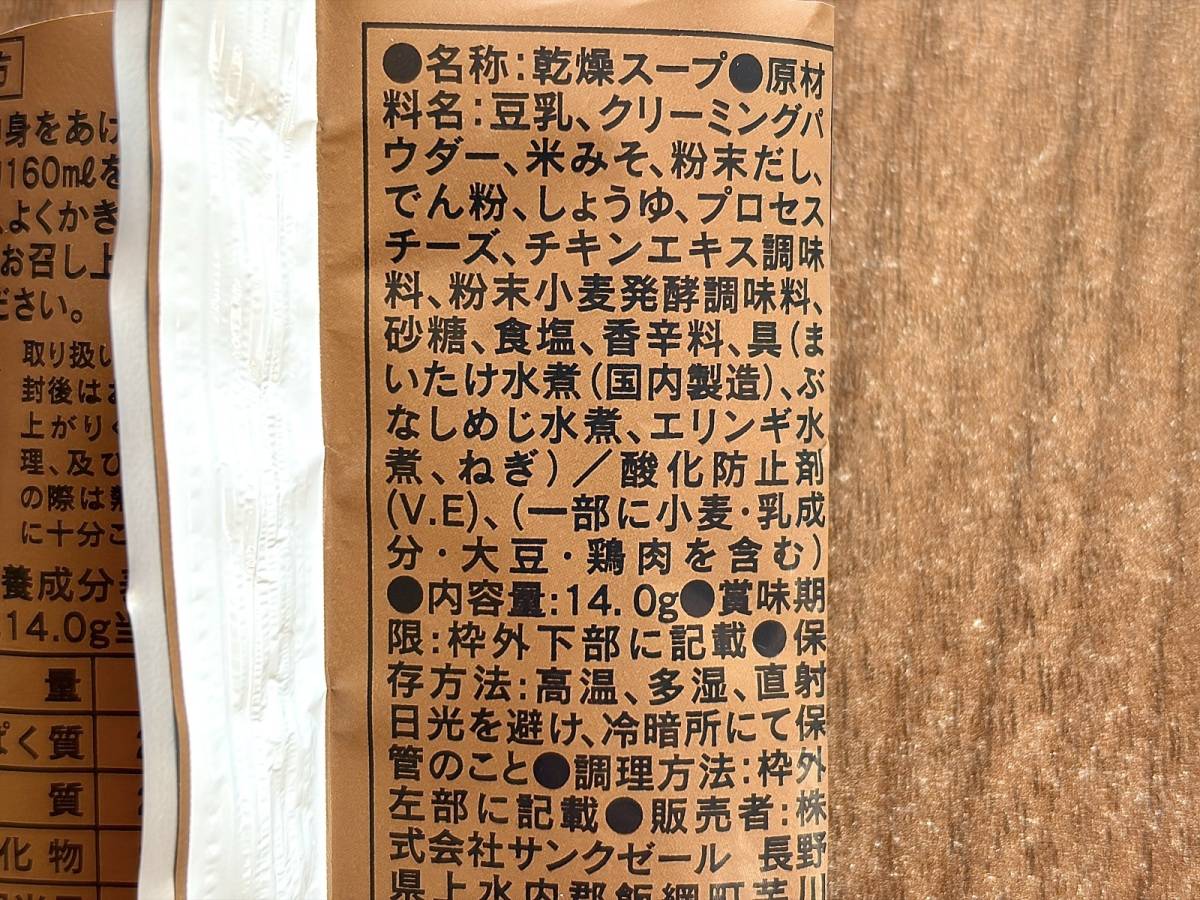 方
身をあけ
160mlを
よくかき
お召し上
ださい。
取り扱い
封後はお
上がりく
理、及び
の際は熱
に十分ご
養成分表
14.0g当
量
ぱく質
質
化物
●名称:乾燥スープ●原材
料名:豆乳、クリーミングパ
ウダー、米みそ、粉末だし、
でん粉、しょうゆ、プロセス
チーズ、チキンエキス調味
料、粉末小麦発酵調味料、
砂糖、食塩、香辛料、具(ま
いたけ水煮(国内製造)、ぶ
なしめじ水煮、エリンギ水
煮、ねぎ)／酸化防止剤
(V.E)、(一部に小麦・乳成
分・大豆・鶏肉を含む)
●内容量:14.0g●賞味期
限:枠外下部に記載●保
存方法:高温、多湿、直射
日光を避け、冷暗所にて保
管のこと●調理方法:枠外
左部に記載●販売者:株
式会社サンクゼール 長野
県上水内郡飯綱町芋川